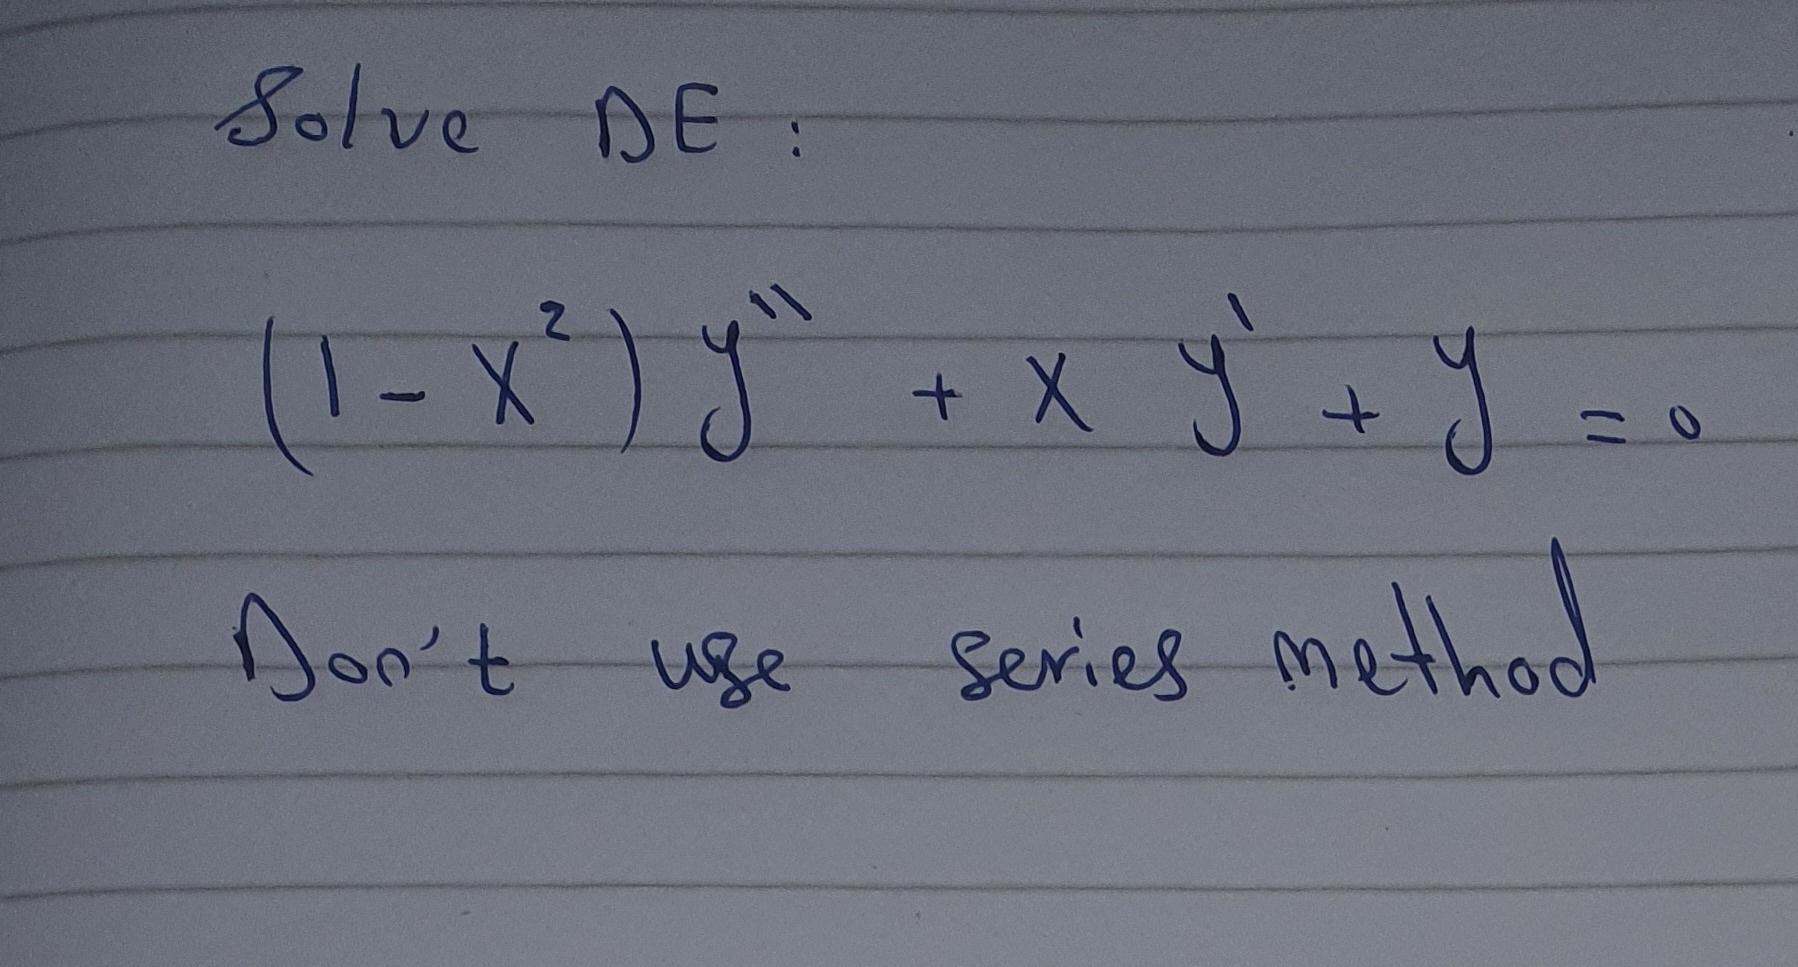 Solve DE :
(1 - x²) y'' + x y' + y = 0
Don't use series method